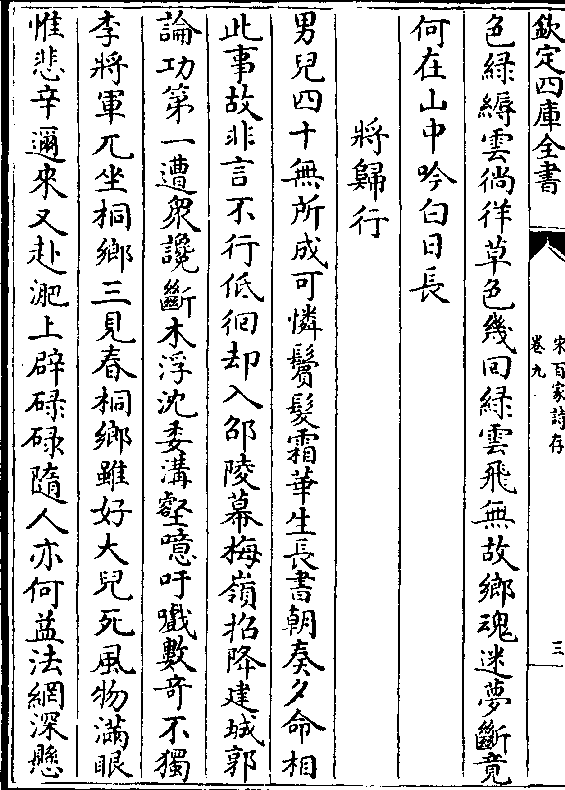 欽定四庫全書
宋百家詩存
卷九
三
色綠縟雲徜徉草色幾回綠雲飛無故鄉魂迷夢斷竟
何在山中吟白日長
將歸行
男兒四十無所成可憐鬢髮霜華生長書朝奏夕命相
此事故非言不行低徊却入邵陵幕梅嶺招降建城郭
論功第一遭衆讒斷木浮沈委溝壑噫吁戲數奇不獨
李將軍兀坐桐鄉三見春桐鄉雖好大兒死風物滿眼
惟悲辛邇來又赴淝上辟碌碌隨人亦何益法網深懸